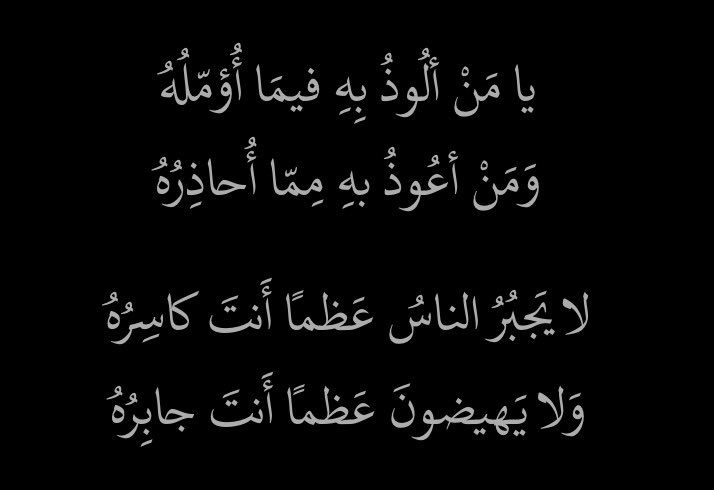 يا مَنْ ألُوذُ بِهِ فيمَا أُؤمّلُهُ
وَمَنْ أعُوذُ بهِ مِمّا أُحاذِرُهُ
لا يَجبُرُ الناسُ عَظمًا أَنتَ كاسِرُهُ
وَلا يَهيضونَ عَظمًا أَنتَ جابِرُهُ